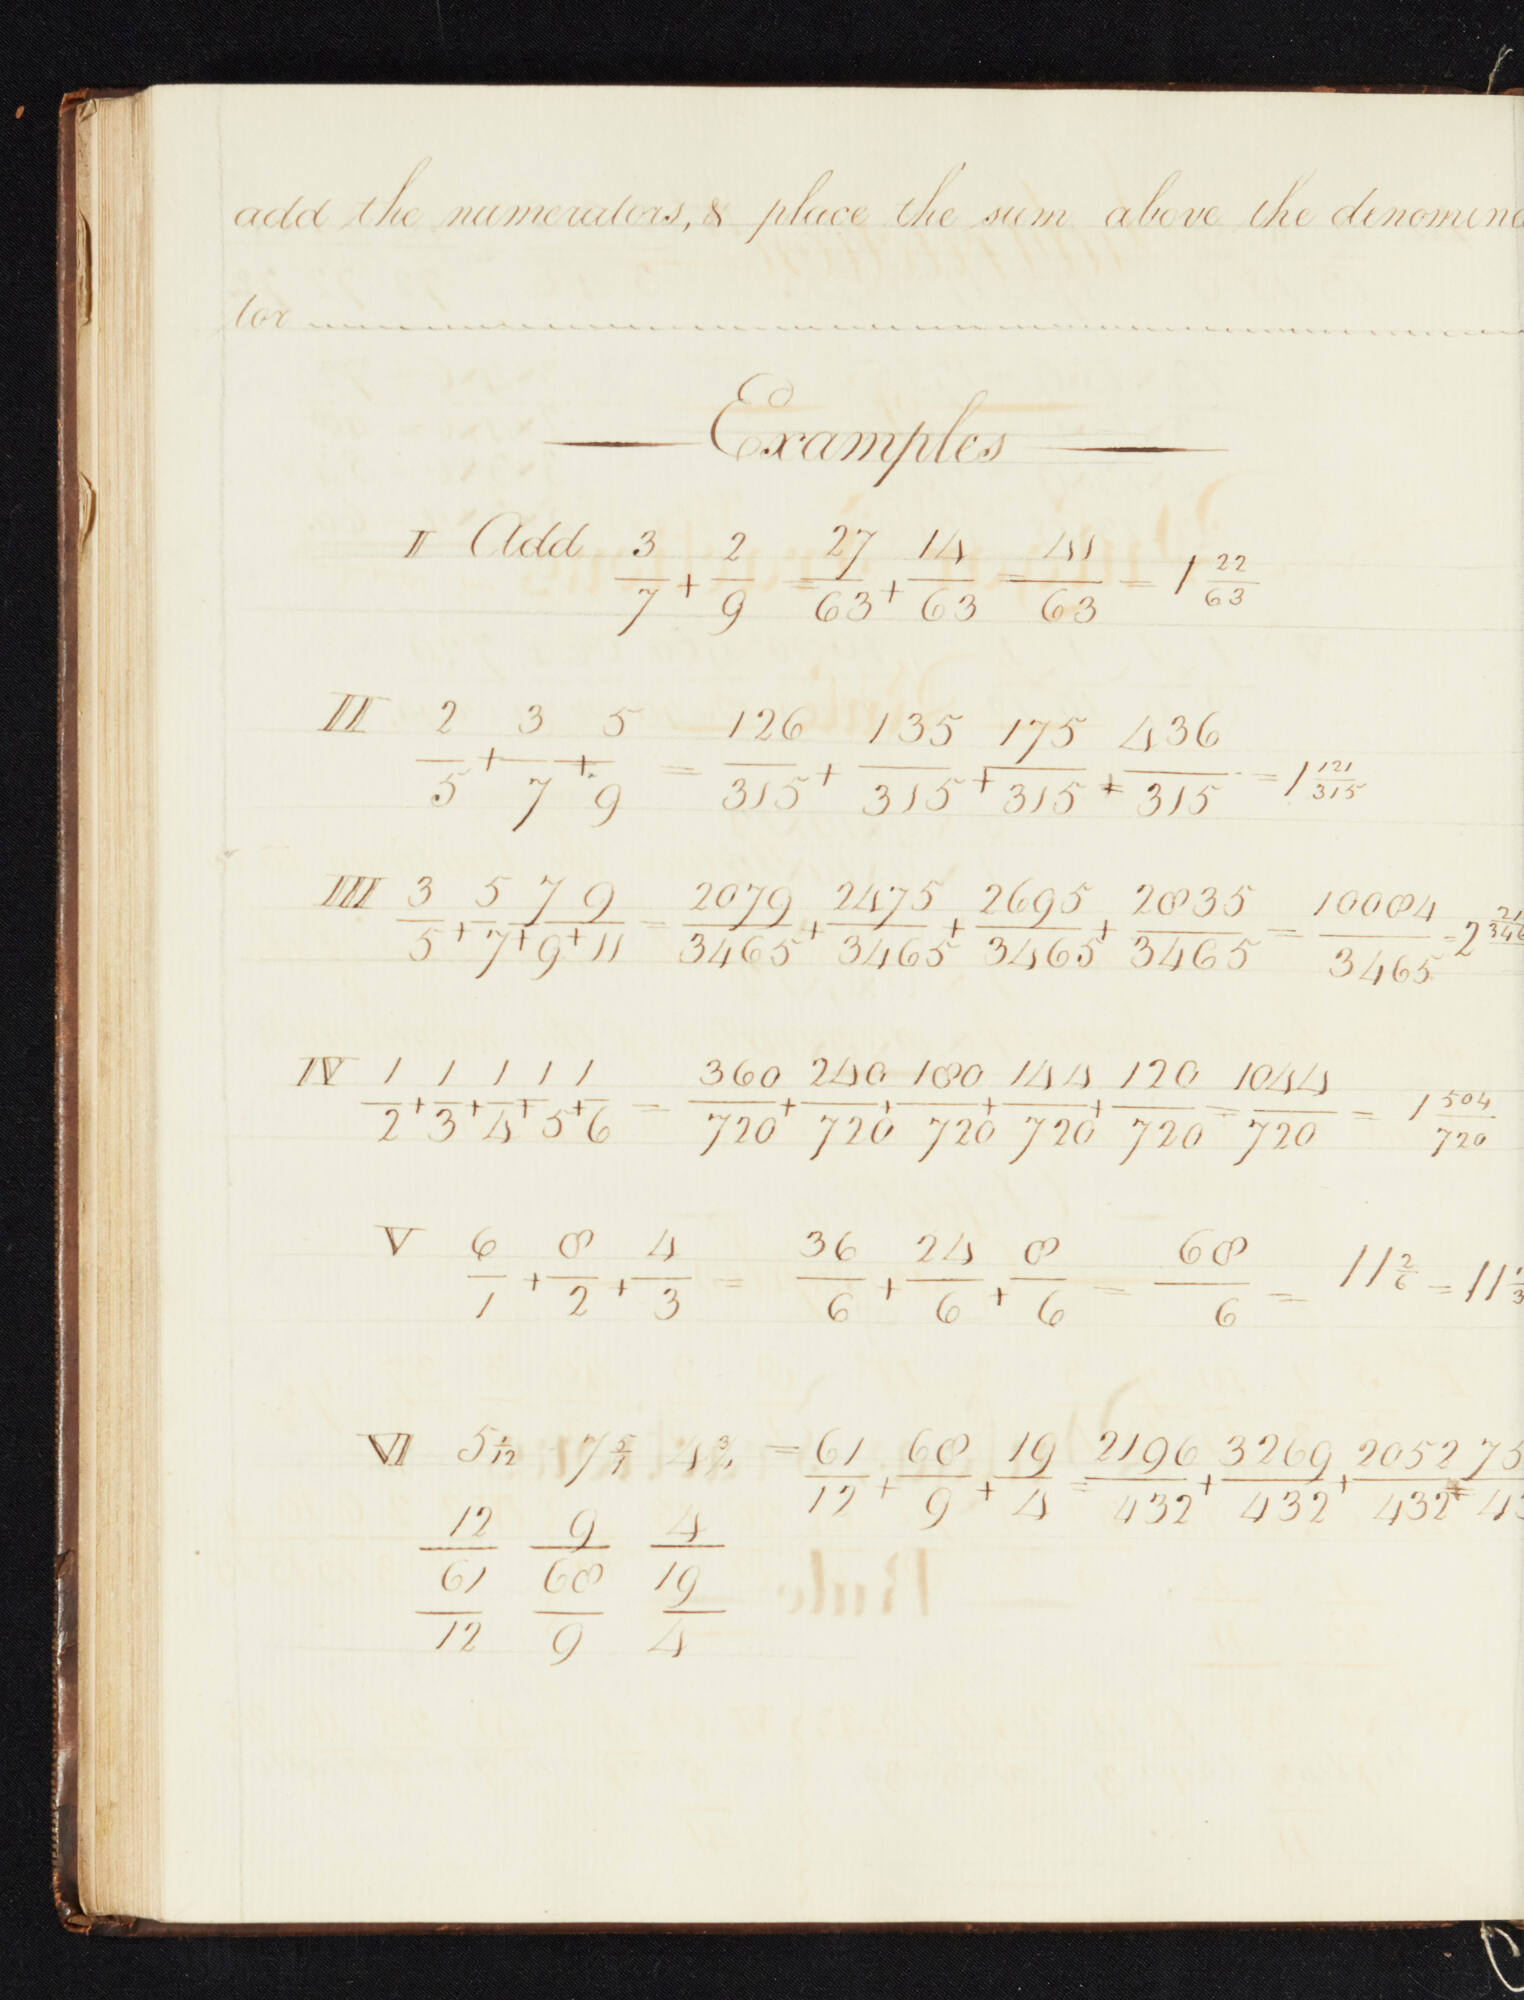 add the numerators, & place the sum above the denomina
tor
Examples
I Add 3/7 + 2/9 = 27/63 + 14/63 = 41/63 = 1 22/63
II 2/5 + 3/7 + 5/9 = 126/315 + 135/315 + 175/315 + 436/315 = 1 121/315
III 3/5 + 5/7 + 7/9 + 9/11 = 2079/3465 + 2475/3465 + 2695/3465 + 2835/3465 = 10084/3465 = 2
IV 1/2 + 1/3 + 1/4 + 1/5 + 1/6 = 360/720 + 240/720 + 180/720 + 144/720 + 120/720 = 1044/720 = 1 504/720
V 6/1 + 8/2 + 4/3 = 36/6 + 24/6 + 8/6 = 68/6 = 11 2/6 = 11 1/3
VI 5 1/12 7 5/1 4 3/4 = 61/12 + 68/9 + 19/4 = 2196/432 + 3269/432 + 2052/432 =
12 9 4
61 68 19
12 9 4